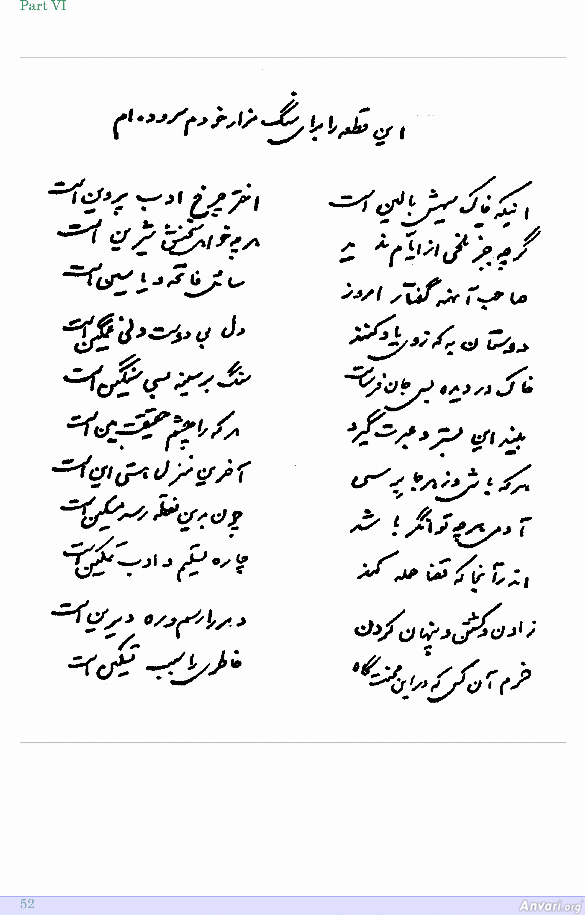 Part VI
این قطعه را برای سنگ مزار خودم سروده ام
اینکه خاک سیهش بالین است اختر چرخ ادب پروین است
گرچه جز تلخی از ایام ندید هرچه خواهی سخنش شیرین است
صاحب آنهمه گفتار امروز سائل فاتحه و یاسین است
دوستان به که زوی یاد کنند دل بی دوست دلی غمگین است
خاک در دیده بسی جان فرساست سنگ بر سینه بسی سنگین است
بیند این بستر و عبرت گیرد هرکه را چشم حقیقت بین است
هرکه باشی و زهرجا برسی آخرین منزل هستی این است
آدمی هرچه توانگر باشد چون بدین نقطه رسد مسکین است
اندر آنجا که قضا حمله کند چاره تسلیم و ادب تمکین است
زادن و کشتن و پنهان کردن دهر را رسم و ره دیرین است
خرم آن کس که در این محنت گاه خاطری را سبب تسکین است
52
Anvari.org